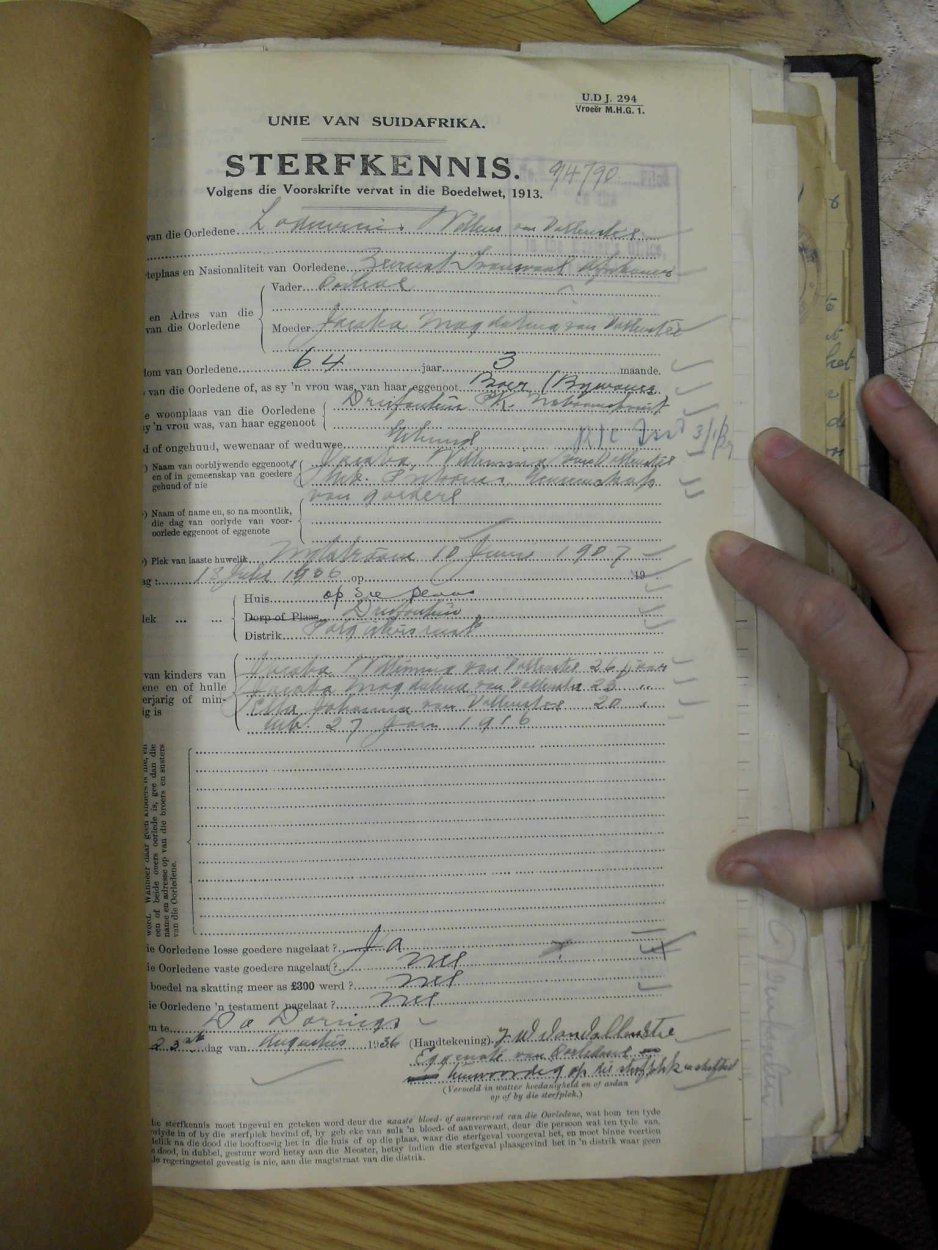 U.D.J. 294
Vroeër M.H.G. 1.
UNIE VAN SUIDAFRIKA.
STERFKENNIS. 94790
Volgens die Voorskrifte vervat in die Boedelwet, 1913.
van die Oorledene Willem van Vollenstee
teplaas en Nasionaliteit van Oorledene Zeerust Transvaal Afrikaner
Vader
en Adres van die
van die Oorledene
Moeder Jacoba Magdalena van Vollenstee
dom van Oorledene 64 jaar 3 maande.
van die Oorledene of, as sy 'n vrou was, van haar eggenoot Boer (Bywoner
e woonplaas van die Oorledene Driefontein PK. Naboomspruit
sy 'n vrou was, van haar eggenoot
d of ongehuud, wewenaar of weduwee Gehuud
Naam van oorblywende eggenoot Jacoba Willemina van Vollenstee
en of in gemeenskap van goedere
gehuud of nie
van goedere
Naam of name en, so na moontlik,
die dag van oorlyde van voor-
oorlede eggenoot of eggenote
Plek van laaste huwelik 10 Junie 1907
ag: 12 Julie 1936 op 19
Huis op die plaas
lek ... ... Dorp of Plaas Driefontein
Distrik Potgietersrust
van kinders van Jacoba Willemina van Vollenstee 26 jaar
ene en of hulle Jacoba Magdalena van Vollenstee 23 "
erjarig of min- Johanna van Vollenstee 20 "
ig is 27 Jan 1916
word. Wanneer daar geen kinders is nie, en
een of beide ouers oorlede is, gee dan die
name en adresse op van die broers en susters
van die Oorledene.
ie Oorledene losse goedere nagelaat? Ja
ie Oorledene vaste goedere nagelaat? nee
boedel na skatting meer as £300 werd? nee
ie Oorledene 'n testament nagelaat? nee
en te De Dorings
23ste dag van Augustus 1936 (Handtekening) J W van Vollenstee
Eggenote van Oorledene
teenwoordig op die sterfplek
(Vermeld in watter hoedanigheid en of aldan
op of by die sterfplek.)
ie sterfkennis moet ingevul en geteken word deur die naaste bloed- of aanverwant van die Oorledene, wat hom ten tyde
rlyde in of by die sterfplek bevind of, by gebreke van sulk 'n bloed- of aanverwant, deur die persoon wat ten tyde van,
delik na die dood die hooftoesig het in die huis of op die plaas, waar die sterfgeval voorgeval het, en moet binne veertien
e dood, in dubbel, gestuur word hetsy aan die Meester, hetsy indien die sterfgeval plaasgevind het in 'n distrik waar geen
le regeringsetel gevestig is nie, aan die magistraat van die distrik.